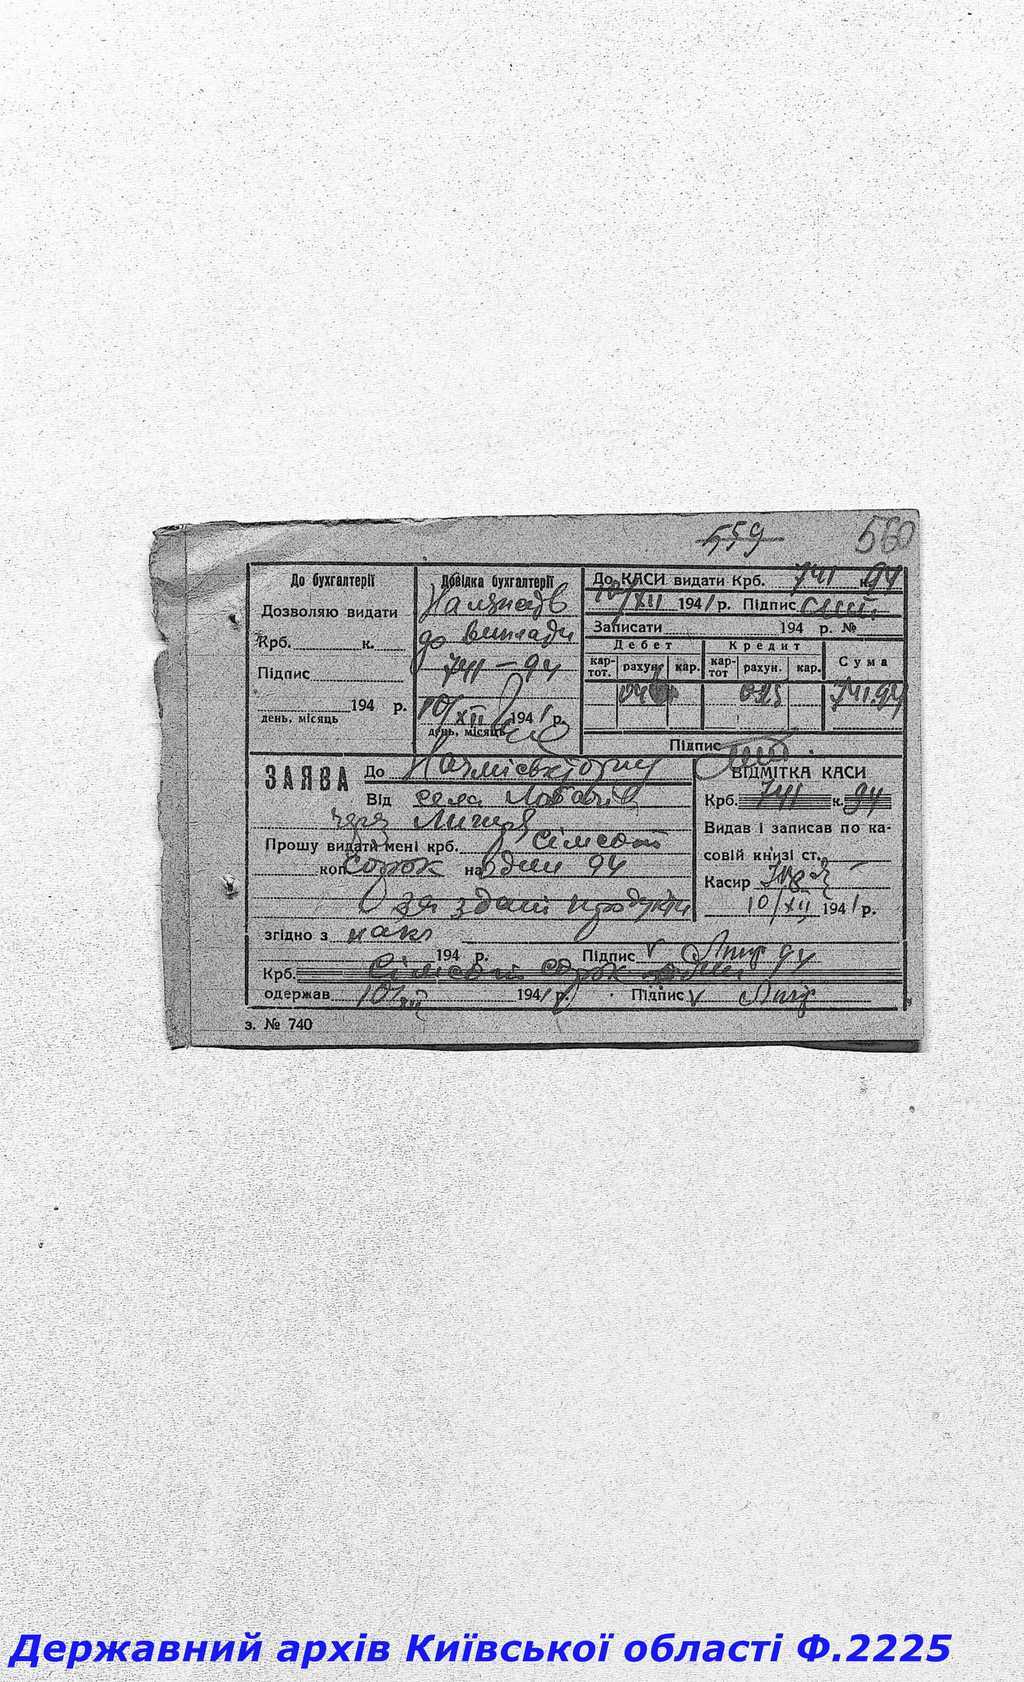 559 560
До бухгалтерії
Дозволяю видати
Крб. к.
Підпис
194 р.
день, місяць
Довідка бухгалтерії
до виплати
741 — 94
10/XII 1941 р.
день, місяць
До КАСИ видати Крб. 741 к. 94
10/XII 1941 р. Підпис
Записати 194 р. №
Дебет Кредит
картот. рахун. кар. картот рахун. кар. Сума
741.94
Підпис
ЗАЯВА До
Від села
через
Прошу видати мені крб. сімсот
коп. сорок на один 94
за здані продукти
згідно з накл
194 р. Підпис
Крб. Сімсот сорок один 94
одержав 10/XII 1941 р. Підпис
ВІДМІТКА КАСИ
Крб. 741 к. 94
Видав і записав по ка-
совій книзі ст.
Касир
10/XII 1941 р.
з. № 740
Державний архів Київської області Ф.2225